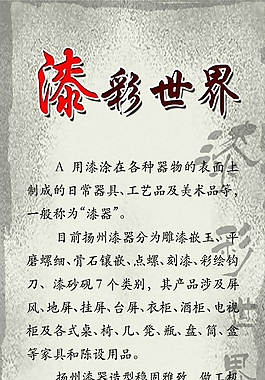 漆彩世界
A 用漆涂在各种器物的表面上
制成的日常器具、工艺品及美术品等，
一般称为“漆器”。
目前扬州漆器分为雕漆嵌玉、平
磨螺钿、骨石镶嵌、点螺、刻漆、彩绘钩
刀、漆砂砚7个类别，其产品涉及屏
风、地屏、挂屏、台屏、衣柜、酒柜、电视
柜及各式桌、椅、几、凳、瓶、盘、筒、盒
等家具和陈设用品。
扬州漆器造型稳固雅致，做工极
漆彩世界